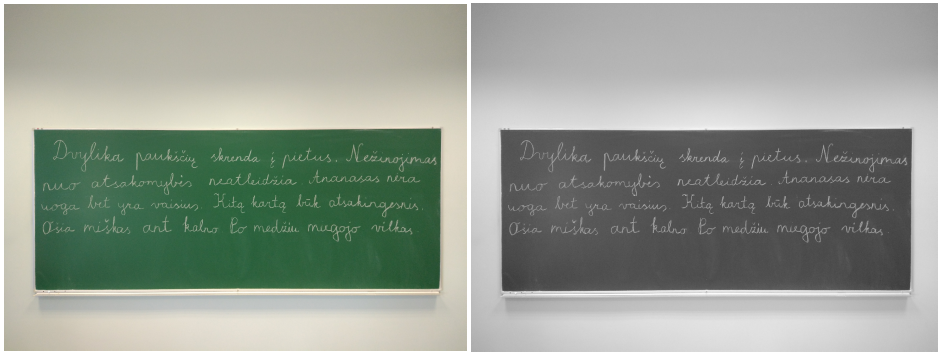 Dvylika paukščių skrenda į pietus. Nežinojimas
nuo atsakomybės neatleidžia. Ananasas nėra
uoga bet yra vaisius. Kitą kartą būk atsakingesnis.
Ošia miškas ant kalno. Po medžiu miegojo vilkas.
Dvylika paukščių skrenda į pietus. Nežinojimas
nuo atsakomybės neatleidžia. Ananasas nėra
uoga bet yra vaisius. Kitą kartą būk atsakingesnis.
Ošia miškas ant kalno. Po medžiu miegojo vilkas.